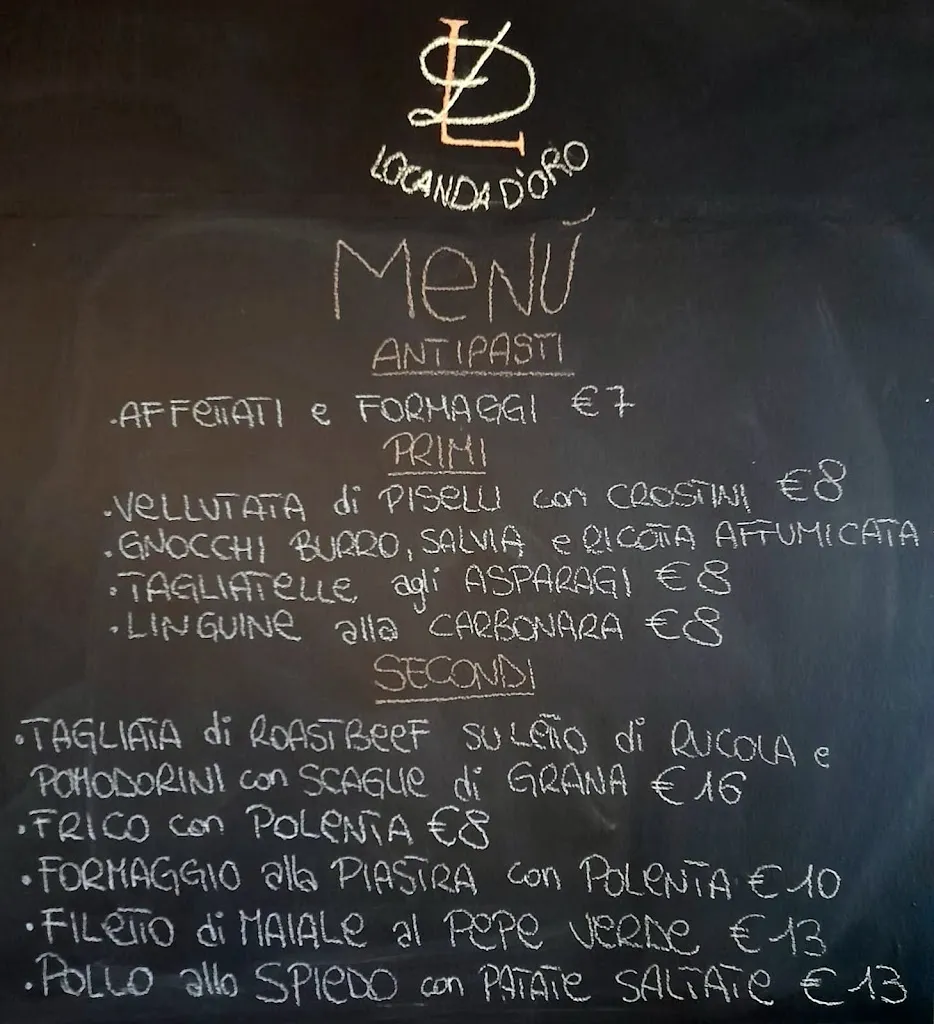 LD
LOCANDA D'ORO
MENÙ
ANTIPASTI
·AFFETTATI e FORMAGGI €7
PRIMI
·VELLUTATA di PISELLI con CROSTINI €8
·GNOCCHI BURRO, SALVIA e RICOTTA AFFUMICATA
·TAGLIATELLE agli ASPARAGI €8
·LINGUINE alla CARBONARA €8
SECONDI
·TAGLIATA di ROASTBEEF SU LETTO di RUCOLA e
POMODORINI con SCAGLIE di GRANA €16
·FRICO con POLENTA €8
·FORMAGGIO alla PIASTRA con POLENTA €10
·FILETTO di MAIALE al PEPE VERDE €13
·POLLO allo SPIEDO con PATATE SALTATE €13